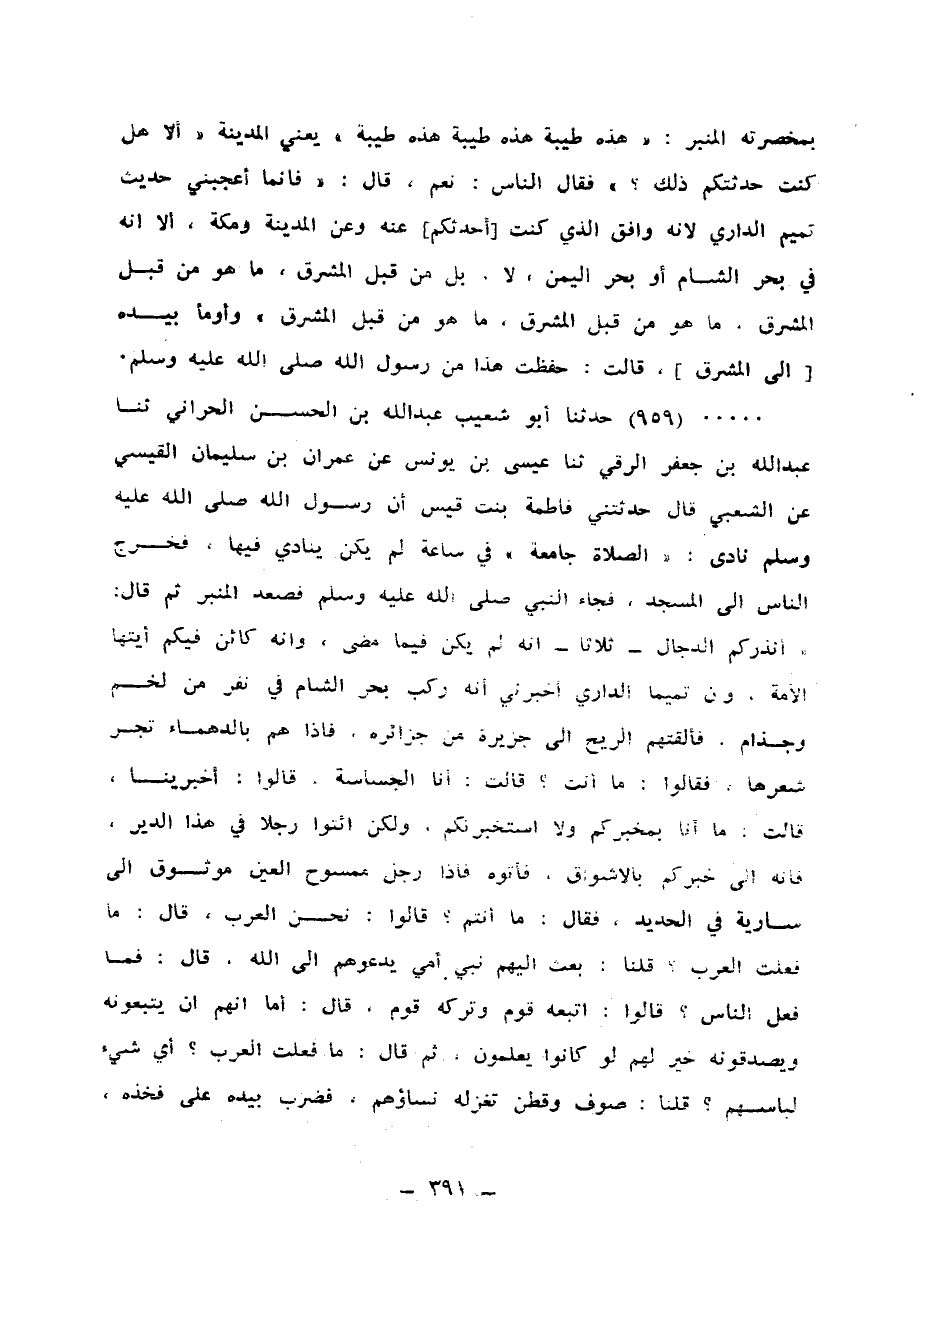 بمخصرته المنبر : « هذه طيبة هذه طيبة هذه طيبة » يعني المدينة « ألا هل
كنت حدثتكم ذلك ؟ » فقال الناس : نعم ، قال : « فانما أعجبني حديث
تميم الداري لانه وافق الذي كنت [أحدثكم] عنه وعن المدينة ومكة ، ألا انه
في بحر الشام أو بحر اليمن ، لا . بل من قبل المشرق ، ما هو من قبل
المشرق . ما هو من قبل المشرق ، ما هو من قبل المشرق » وأومأ بيده
[ الى المشرق ] ، قالت : حفظت هذا من رسول الله صلى الله عليه وسلم.
..... (٩٥٩) حدثنا أبو شعيب عبدالله بن الحسن الحراني ثنا
عبدالله بن جعفر الرقي ثنا عيسى بن يونس عن عمران بن سليمان القيسي
عن الشعبي قال حدثتني فاطمة بنت قيس أن رسول الله صلى الله عليه
وسلم نادى : « الصلاة جامعة » في ساعة لم يكن ينادي فيها ، فخرج
الناس الى المسجد ، فجاء النبي صلى الله عليه وسلم فصعد المنبر ثم قال:
« أنذركم الدجال ـ ثلاثا ـ انه لم يكن فيما مضى ، وانه كائن فيكم أيتها
الأمة . ون تميما الداري أخبرني أنه ركب بحر الشام في نفر من لخم
وجذام . فألقتهم الريح الى جزيرة من جزائره ، فاذا هم بالدهماء تجر
شعرها ، فقالوا : ما أنت ؟ قالت : أنا الجساسة . قالوا : أخبرينا ،
قالت : ما أنا بمخبركم ولا استخبرنكم . ولكن ائتوا رجلا في هذا الدير ،
فانه الى خبركم بالاشواق ، فأتوه فاذا رجل ممسوح العين موثوق الى
سارية في الحديد ، فقال : ما أنتم ؟ قالوا : نحن العرب ، قال : ما
فعلت العرب ؟ قلنا : بعث اليهم نبي أمي يدعوهم الى الله ، قال : فما
فعل الناس ؟ قالوا : اتبعه قوم وتركه قوم ، قال : أما انهم ان يتبعونه
ويصدقونه خير لهم لو كانوا يعلمون ، ثم قال : ما فعلت العرب ؟ أي شيء
لباسهم ؟ قلنا : صوف وقطن تغزله نساؤهم ، فضرب بيده على فخذه ،
ـ ٣٩١ ـ